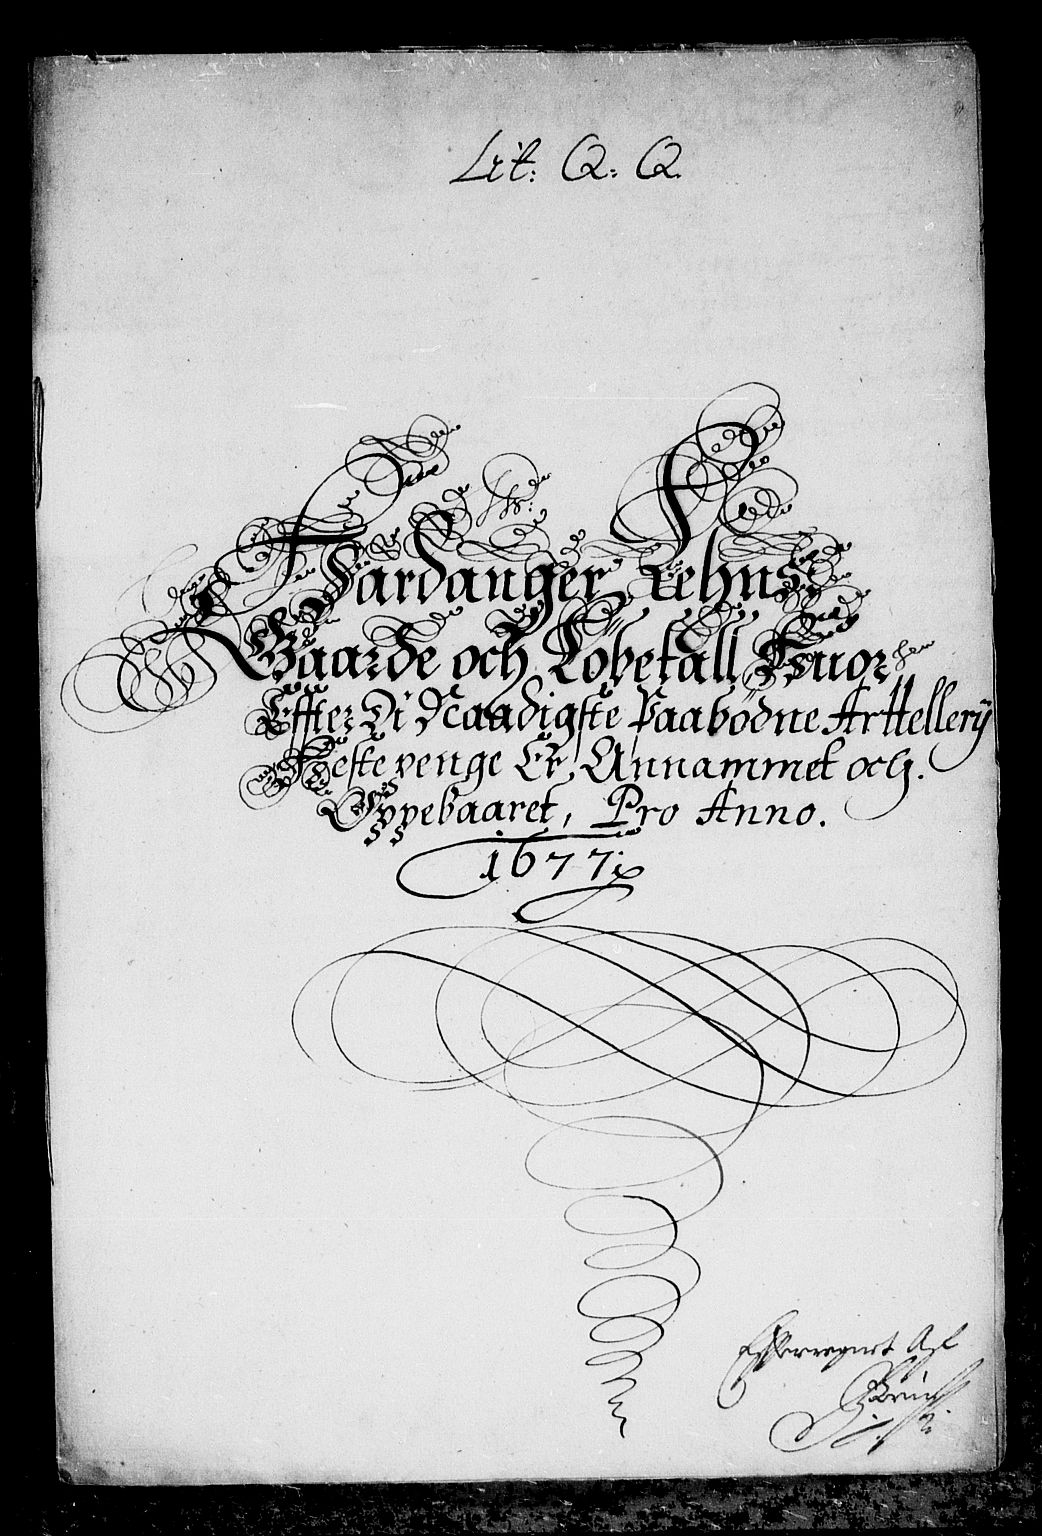 Lit: Q: Q.
Hardanger Lehns
Gaarde och Lobefall
Effter Di Naadigste Paabødne Arttellery
Heste penge Er, Annammet och.
Oppebaaret, Pro Anno.
1677
Efterregnet Af